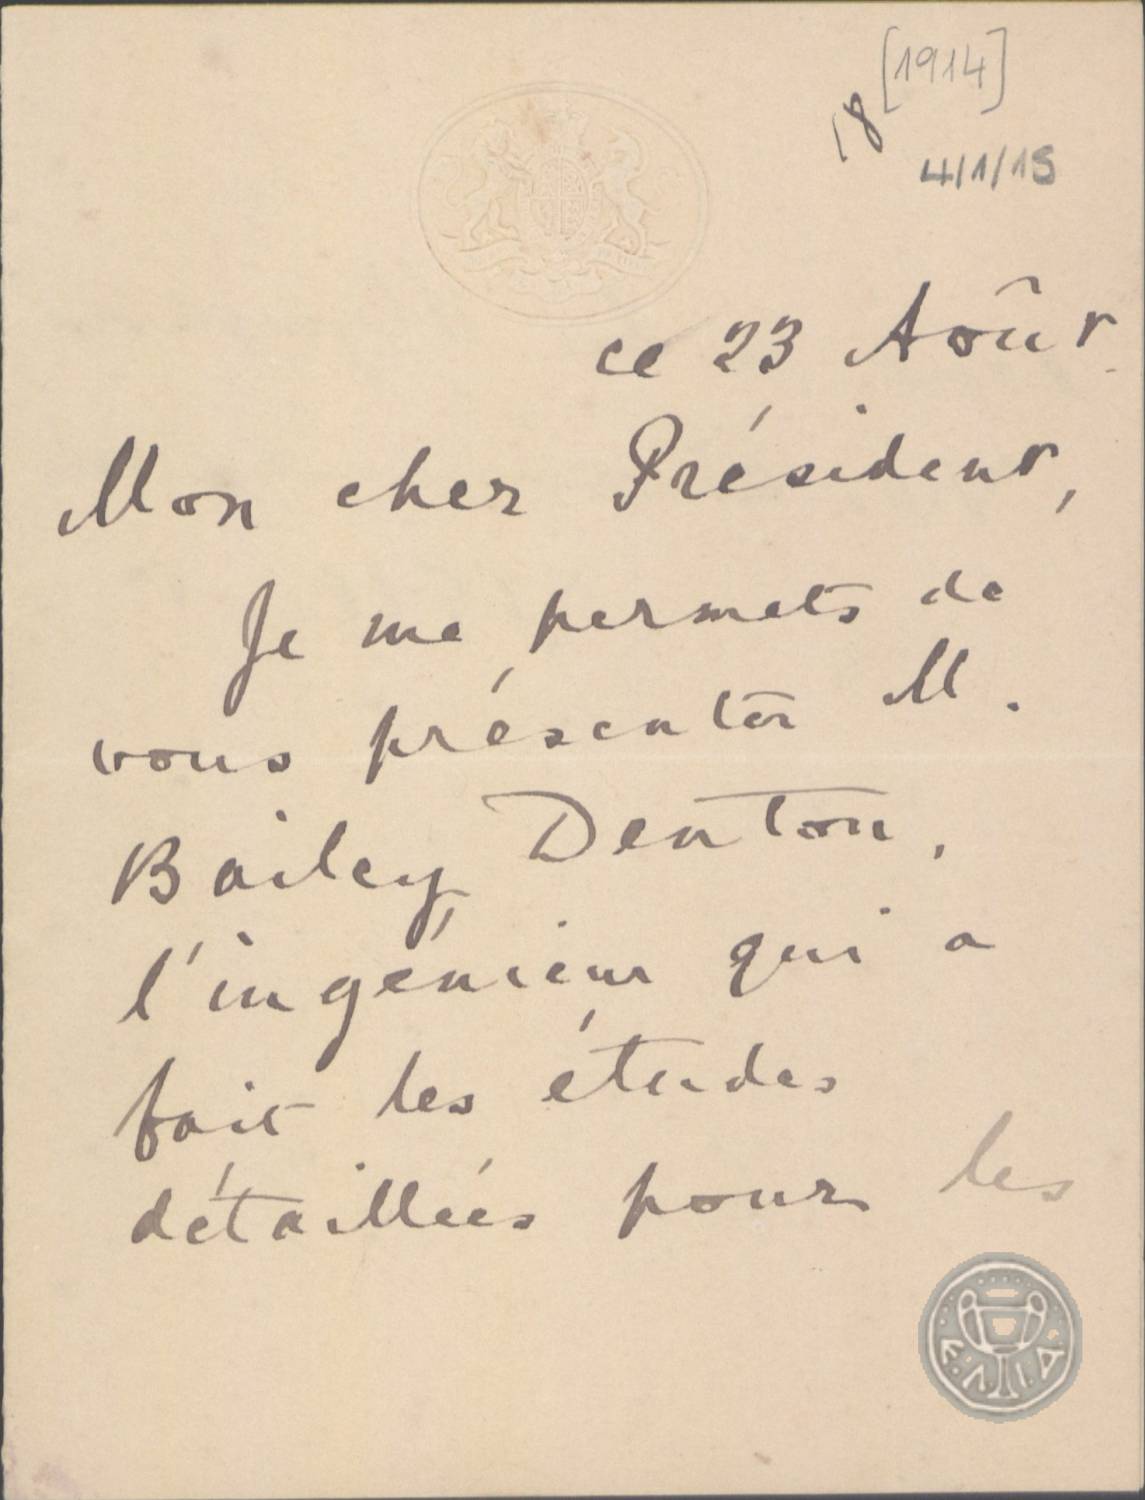 [1914]
18
4/1/15
ce 23 Août.
Mon cher Président,
Je me permets de
vous présenter M.
Bailey Denton,
l'ingénieur qui a
fait les études
détaillées pour les
Ε.Λ.Ι.Α